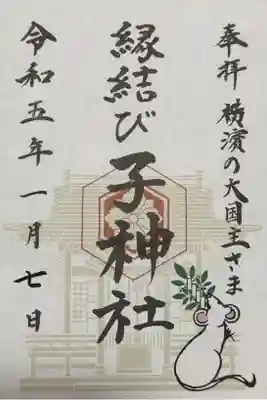 奉拝 横濱の大国主さま
縁結び子神社
令和五年一月七日